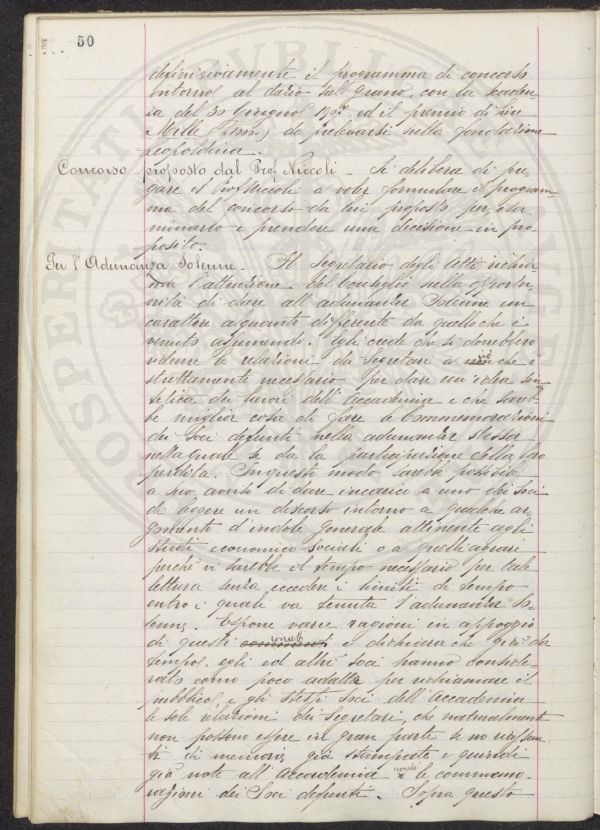 50
definitivamente il programma di concorso
intorno al dazio sul grano, con la scaden-
za del 30 Giugno e il premio di Lire
Mille da prelevarsi sulla fondazione
leopoldina.
Concorso proposto dal Prof. Niccoli - Si delibera di pre-
gare il Prof. Niccoli a voler formulare il program-
ma del concorso da lui proposto per esa-
minarlo e prendere una decisione in pro-
posito.
Per l'Adunanza Solenne - Il Segretario degli Atti richia-
ma l'attenzione del Consiglio sulla opportu-
nità di dare all'adunanza solenne un
carattere alquanto differente da quello che è
venuto assumendo. Egli crede che si dovrebbero
ridurre le relazioni dei Segretari a ciò che è
strettamente necessario per dare un'idea sin-
tetica dei lavori dell'Accademia e che sareb-
be miglior cosa di fare le Commemorazioni
dei Soci defunti nella adunanza stessa
nella quale si dà la partecipazione della loro
perdita. In questo modo sarebbe possibile
a suo avviso di dare incarico a uno dei Soci
di leggere un discorso intorno a qualche ar-
gomento d'indole generale attinente agli
studi economico sociali o a quelli agrari
perchè vi sarebbe il tempo necessario per tale
lettura senza eccedere i limiti di tempo
entro i quali va tenuta l'adunanza so-
lenne. Espone varie ragioni in appoggio
di questi concetti e dichiara che già da
tempo, egli ed altri Soci hanno conside-
rato come poco adatte per richiamare il
pubblico e gli stessi Soci dell'Accademia
le sole relazioni dei Segretari, che naturalmente
non possono essere in gran parte se no riassun-
ti di memorie già stampate e quindi
già note all'Accademia e le commemo-
razioni dei Soci defunti. Sopra questo